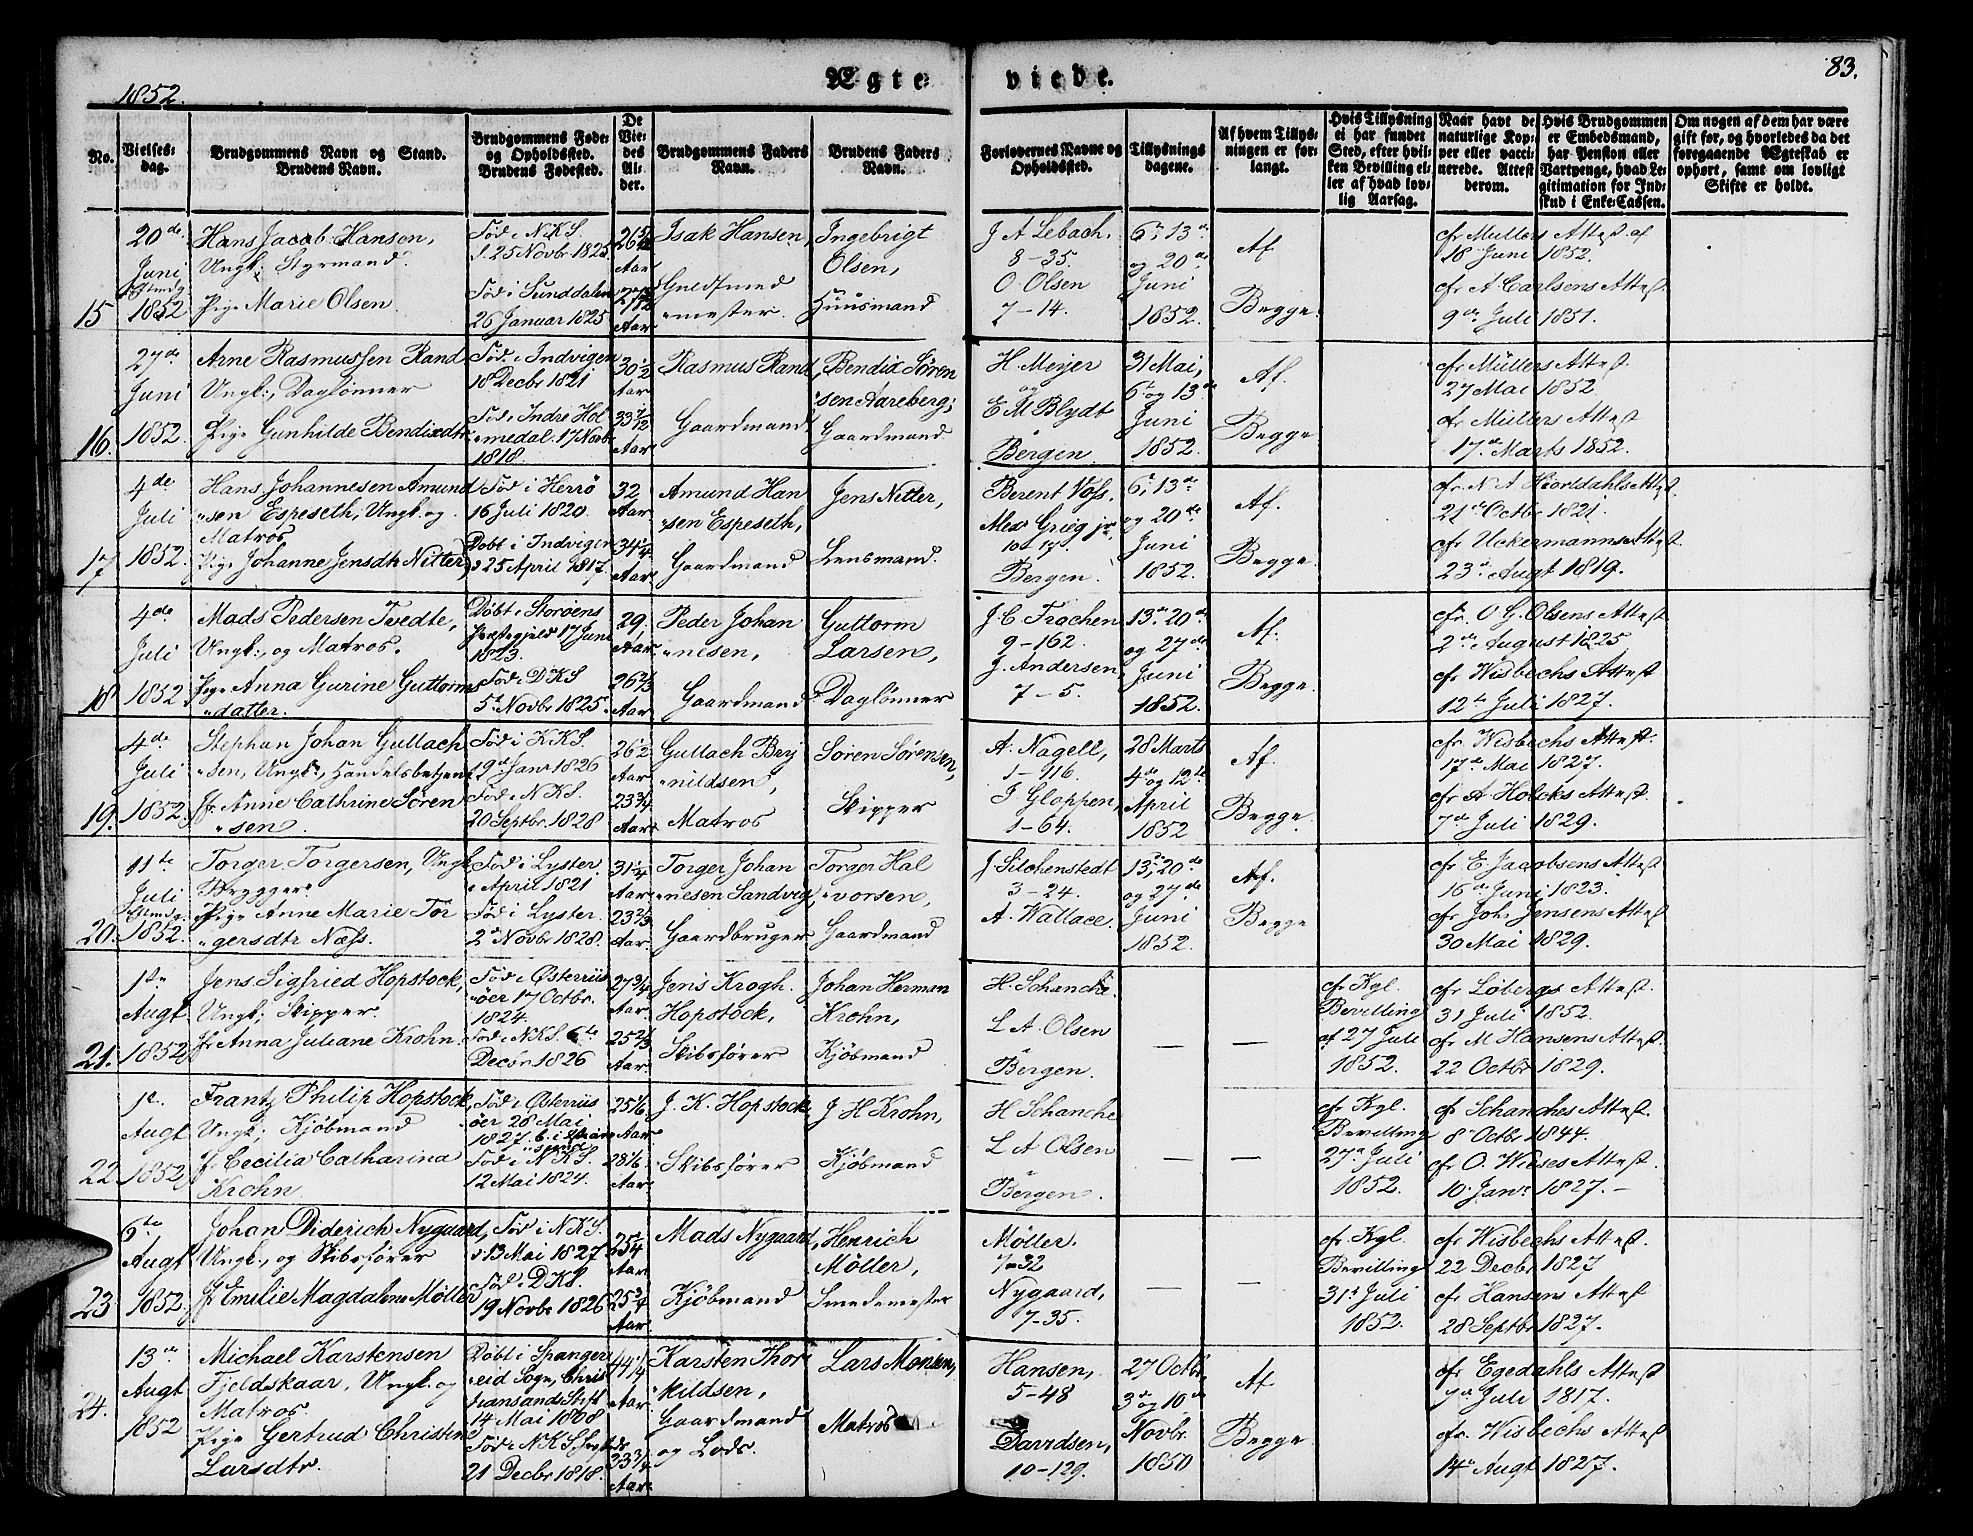 1852.
Ægte viede.
83.
No.
Vielses-
dag.
Brudgommens Navn og Stand.
Brudens Navn.
Brudgommens Føde-
og Opholdssted.
Brudens Fødested.
De
Vie-
des
Al-
der.
Brudgommens Faders
Navn.
Brudens Faders
Navn.
Forlovernes Navne og
Opholdssted.
Tillysnings
dagene.
Af hvem Tillys-
ningen er for-
langt.
Hvis Tillysning
ei har fundet
Sted, efter hvil-
ken Bevilling el-
ler af hvad lov-
lig Aarsag.
Naar havt de
naturlige Kop-
per eller vacci-
nerede. Attest
derom.
Hvis Brudgommen
er Embedsmand,
har Pension eller
Vartpenge, hvad Le-
gitimation for Ind-
skud i Enke-Cassen.
Om nogen af dem har være
gift før, og hvorledes da det
foregaaende Ægteskab er
ophørt, samt om lovligt
Skifte er holdt.
15
20de
Juni
1852
Hans Jacob Hansen,
Ungk: Styrmand.
Pige Marie Olsen
Fød i NKS.
d. 25 Novbr 1825
Fød i Sunddalen
26 Januar 1825
Aar
Aar
Isak Hansen,
Snedkermester.
Ingebrigt
Olsen,
Huusmand
J A Lebach.
8-35.
O. Olsen
7-14.
6te 13de
og 20de
Juni
1852.
Af
Begge.
cfr Mullers Attest af
18 Juni 1852.
cfr A Carlsens Attest.
9de Juli 1851.
16.
27de
Juni
1852.
Arne Rasmussen Rand
Ungk:, Daglønner
Pige Gunhilde Bendixdtr
Fød i Indvigen
18 Decbr 1821
Fød i Indre Hol
medal. 17 Novbr
1818.
30½
Aar
33 7/12
Aar
Rasmus Rand
Gaardmand
Bendix Søren
sen Aareberg;
Gaardmand
H. Meyer
og
E M Blydt
Bergen
31 Mai,
6te og 13de
Juni
1852.
Af.
Begge.
cfr Müllers Attest
27 Mai 1852.
cfr Müllers Attest
17de Marts 1852.
17
4de
Juli
1852.
Hans Johannesen Amund
"sen Espeseth, Ungk. og
Matros
Pige Johanne Jensdtr Nitter,
Fød i Herrø
16 Juli 1820.
Døbt i Indvigen
d 25 April 1817.
32
Aar.
34¼
Aar
Amund Han
"sen Espeseth,
Gaardmand
Jens Nitter,
Lensmand.
Berent Voss.
Alex Grieg jr.
10-17.
Bergen.
6te, 13de
og 20de
Juni
1852.
Af.
Begge.
cfr N A Hiortdahls Attest
21de Octbr 1821.
cfr Uckermanns Attest
23de Augt 1819.
18
4de
Juli
1852
Mads Pedersen Tvedte,
Ungk:, og Matros.
Pige Anna Gurine Guttorms
"datter.
Døbt i Storøens
Præstegjeld 17 Juni
1823.
Fød i DKS
5te Novbr 1825.
29,
Aar
26⅔
Aar
Peder Johan
"nesen,
Gaardmand
Guttorm
Larsen,
Daglønner
J. C. Frochen
9-162.
J. Andersen
7-5.
13de 20de
og 27de
Juni
1852.
Af.
Begge.
cfr. O G. Olsens Attest
2de August 1825
cfr Wisbechs Attest
12te Juli 1827.
19.
4de
Juli
1852.
Stephan Johan Gullach
"sen, Ungk:, Handelsbetjent
Jfr Anne Cathrine Søren
"sen.
Fød i KKS.
19de Janr 1826
Fød i NKS.
20 Septbr 1828
26½
Aar
23¾
Aar
Gullach Berj
"nildsen,
Matros
Søren Sørensen,
Skipper
A. Nagell,
1-116.
J Gloppen,
1-64.
28 Marts
4de og 12te
April
1852
Af.
Begge.
cfr. Wisbechs Attest.
17de Mai 1827.
cfr A Holcks Attest.
7de Juli 1829.
20.
11te
Juli
1852.
Torger Torgersen, Ungk
Brygger.
Pige Anne Marie Tor
"gersdtr Næss.
Fød i Lyster.
i April 1821
Fød i Lyster
2de Novbr 1828.
31¼
Aar
23⅔
Aar
Torger Johan
"nesen Sandvig,
Gaardbruger
Torger Hal
"vorsen,
Gaardmand
J. Silchenstedt
3-24.
A. Wallace.
13de, 20de
og 27de
Juni
1852.
Af.
Begge
cfr E. Jacobsens Attest
16de Juni 1823.
cfr Joh. Jensens Attest
30 Mai 1829.
21.
1ste
Augt
1852
Jens Sigfried Hopstock,
Ungk; Skipper.
Jfr Anna Juliane Krohn.
Fød i Østerriis
"öer 17 Octbr.
1824.
Fød i NKS. 6te
Decbr 1826
27¾
Aar.
25⅔
Aar
Jens Krogh.
Hopstock,
Skibsfører
Johan Herman
Krohn,
Kjøbmand
H. Schanche.
L A. Olsen
Bergen.
—
—
cfr Kgl.
Bevilling
af 27 Juli
1852.
cfr Løbergs Attest.
31 Juli 1852.
cfr M Hansens Attest.
22 Octbr 1829.
22
1ste
Augt
1852
Frantz Philip Hopstock
Ungk; Kjøbmand
Jfr Cecilia Catharina
Krohn
Fød i Østerriis
öer 28 Mai
1827.
Fød i NKS.
12 Mai 1824.
25⅙
Aar
28⅙
Aar
J. K. Hopstock
Skibsfører
J H Krohn,
Kjøbmand
H Schanche
L A Olsen
Bergen.
—
—
cfr Kgl.
Bevilling
27de Juli
1852.
cfr Schanches Attest.
8 Octbr 1844.
cfr O. Wieses Attest
10 Janr 1827.-
23
6te
Augt
1852
Johan Diderich Nygaard,
Ungk:, og Skibsfører
Jfr Emilie Magdalene Møller
Fød i NKS.
d 13 Mai 1827
Fød i DKS.
19 Novbr 1826
25¼
Aar
25¾
Aar
Mads Nygaard,
Kjøbmand
Henrich
Møller,
Smedemester
Møller.
7-32
Nygaard,
7-35.
—
—
cfr Kgl.
Bevilling
31te Juli
1852.
cfr Wisbechs Attest
22 Decbr 1827
cfr Hansens Attest
28 Septbr 1827.
24.
13de
Augt
1852
Michael Karstensen
Fjeldskaar, Ungk. og
Matros.
Pige Gertrud Christine
Larsdtr.
Døbt i Spanger
"eid Sogn, Chris
tiansands Stift
14 Mai 1808
Fød i NKS
21 Decbr 1818.
44¼
Aar
33¾
Aar
Karsten Thor
"kildsen,
Gaardmand
og Lods.
Lars Monsen,
Matros
Hansen,
5-48
Davidsen,
10-129.
27 Octbr,
3de og 10de
Novbr.
1850
Af.
Begge.
cfr Egedahls Attest
7de Juli 1817.
cfr. Wisbechs Attest
14de Augt 1827.